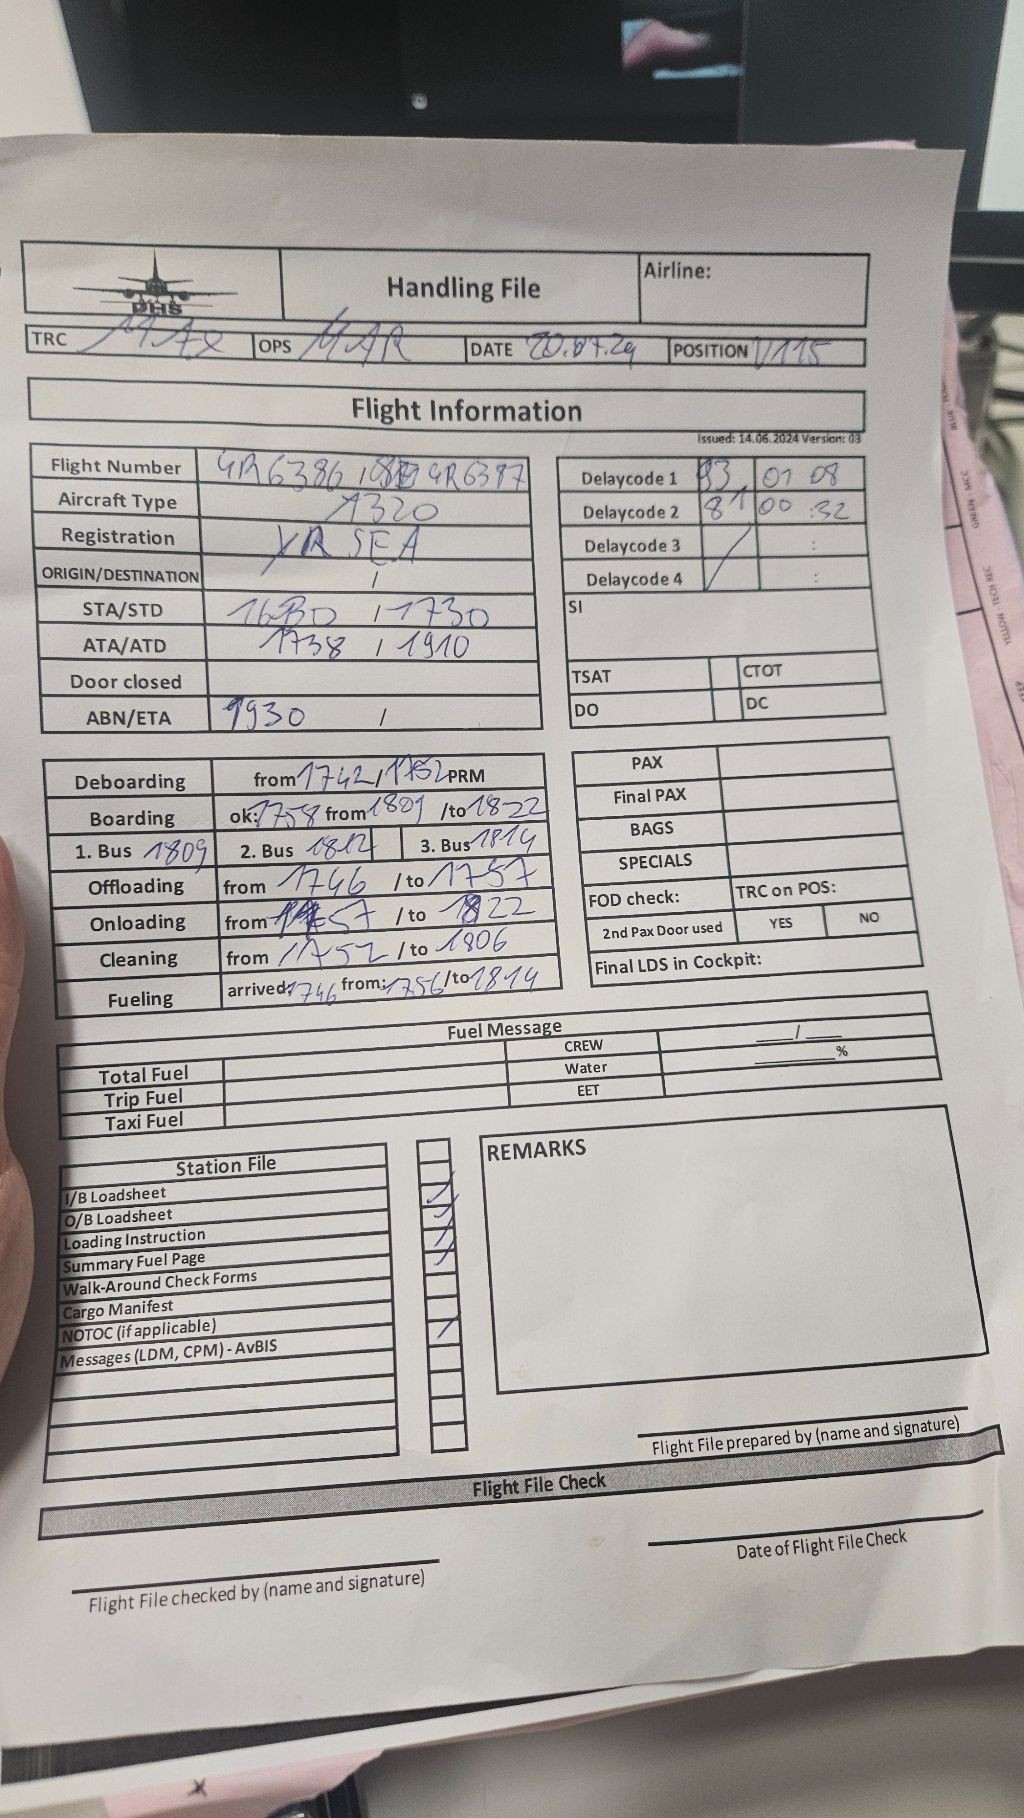 DHS
Handling File
Airline:
TRC MAX OPS MAR DATE 20.07.24 POSITION V115
Flight Information
Issued: 14.06.2024 Version: 03
Flight Number 4R6386 / 4R6387
Aircraft Type A320
Registration YR SEA
ORIGIN/DESTINATION /
STA/STD 1630 / 1730
ATA/ATD 1738 / 1910
Door closed
ABN/ETA 1930 /
Delaycode 1 93 01 08
Delaycode 2 81 00 : 32
Delaycode 3 :
Delaycode 4 :
SI
TSAT CTOT
DO DC
Deboarding from 1742 / 1752 PRM
Boarding ok: 1758 from 1809 /to 1822
1. Bus 1809 2. Bus 1812 3. Bus 1814
Offloading from 1746 /to 1757
Onloading from 1757 /to 1822
Cleaning from 1752 /to 1806
Fueling arrived: 1746 from: 1756 /to 1814
PAX
Final PAX
BAGS
SPECIALS
FOD check: TRC on POS:
2nd Pax Door used YES NO
Final LDS in Cockpit:
Fuel Message
Total Fuel CREW ___/___
Trip Fuel Water ______%
Taxi Fuel EET
Station File
I/B Loadsheet
O/B Loadsheet
Loading Instruction
Summary Fuel Page
Walk-Around Check Forms
Cargo Manifest
NOTOC (if applicable)
Messages (LDM, CPM) - AvBIS
REMARKS
Flight File prepared by (name and signature)
Flight File Check
Flight File checked by (name and signature)
Date of Flight File Check
GREEN - MCC
YELLOW - TECH REC